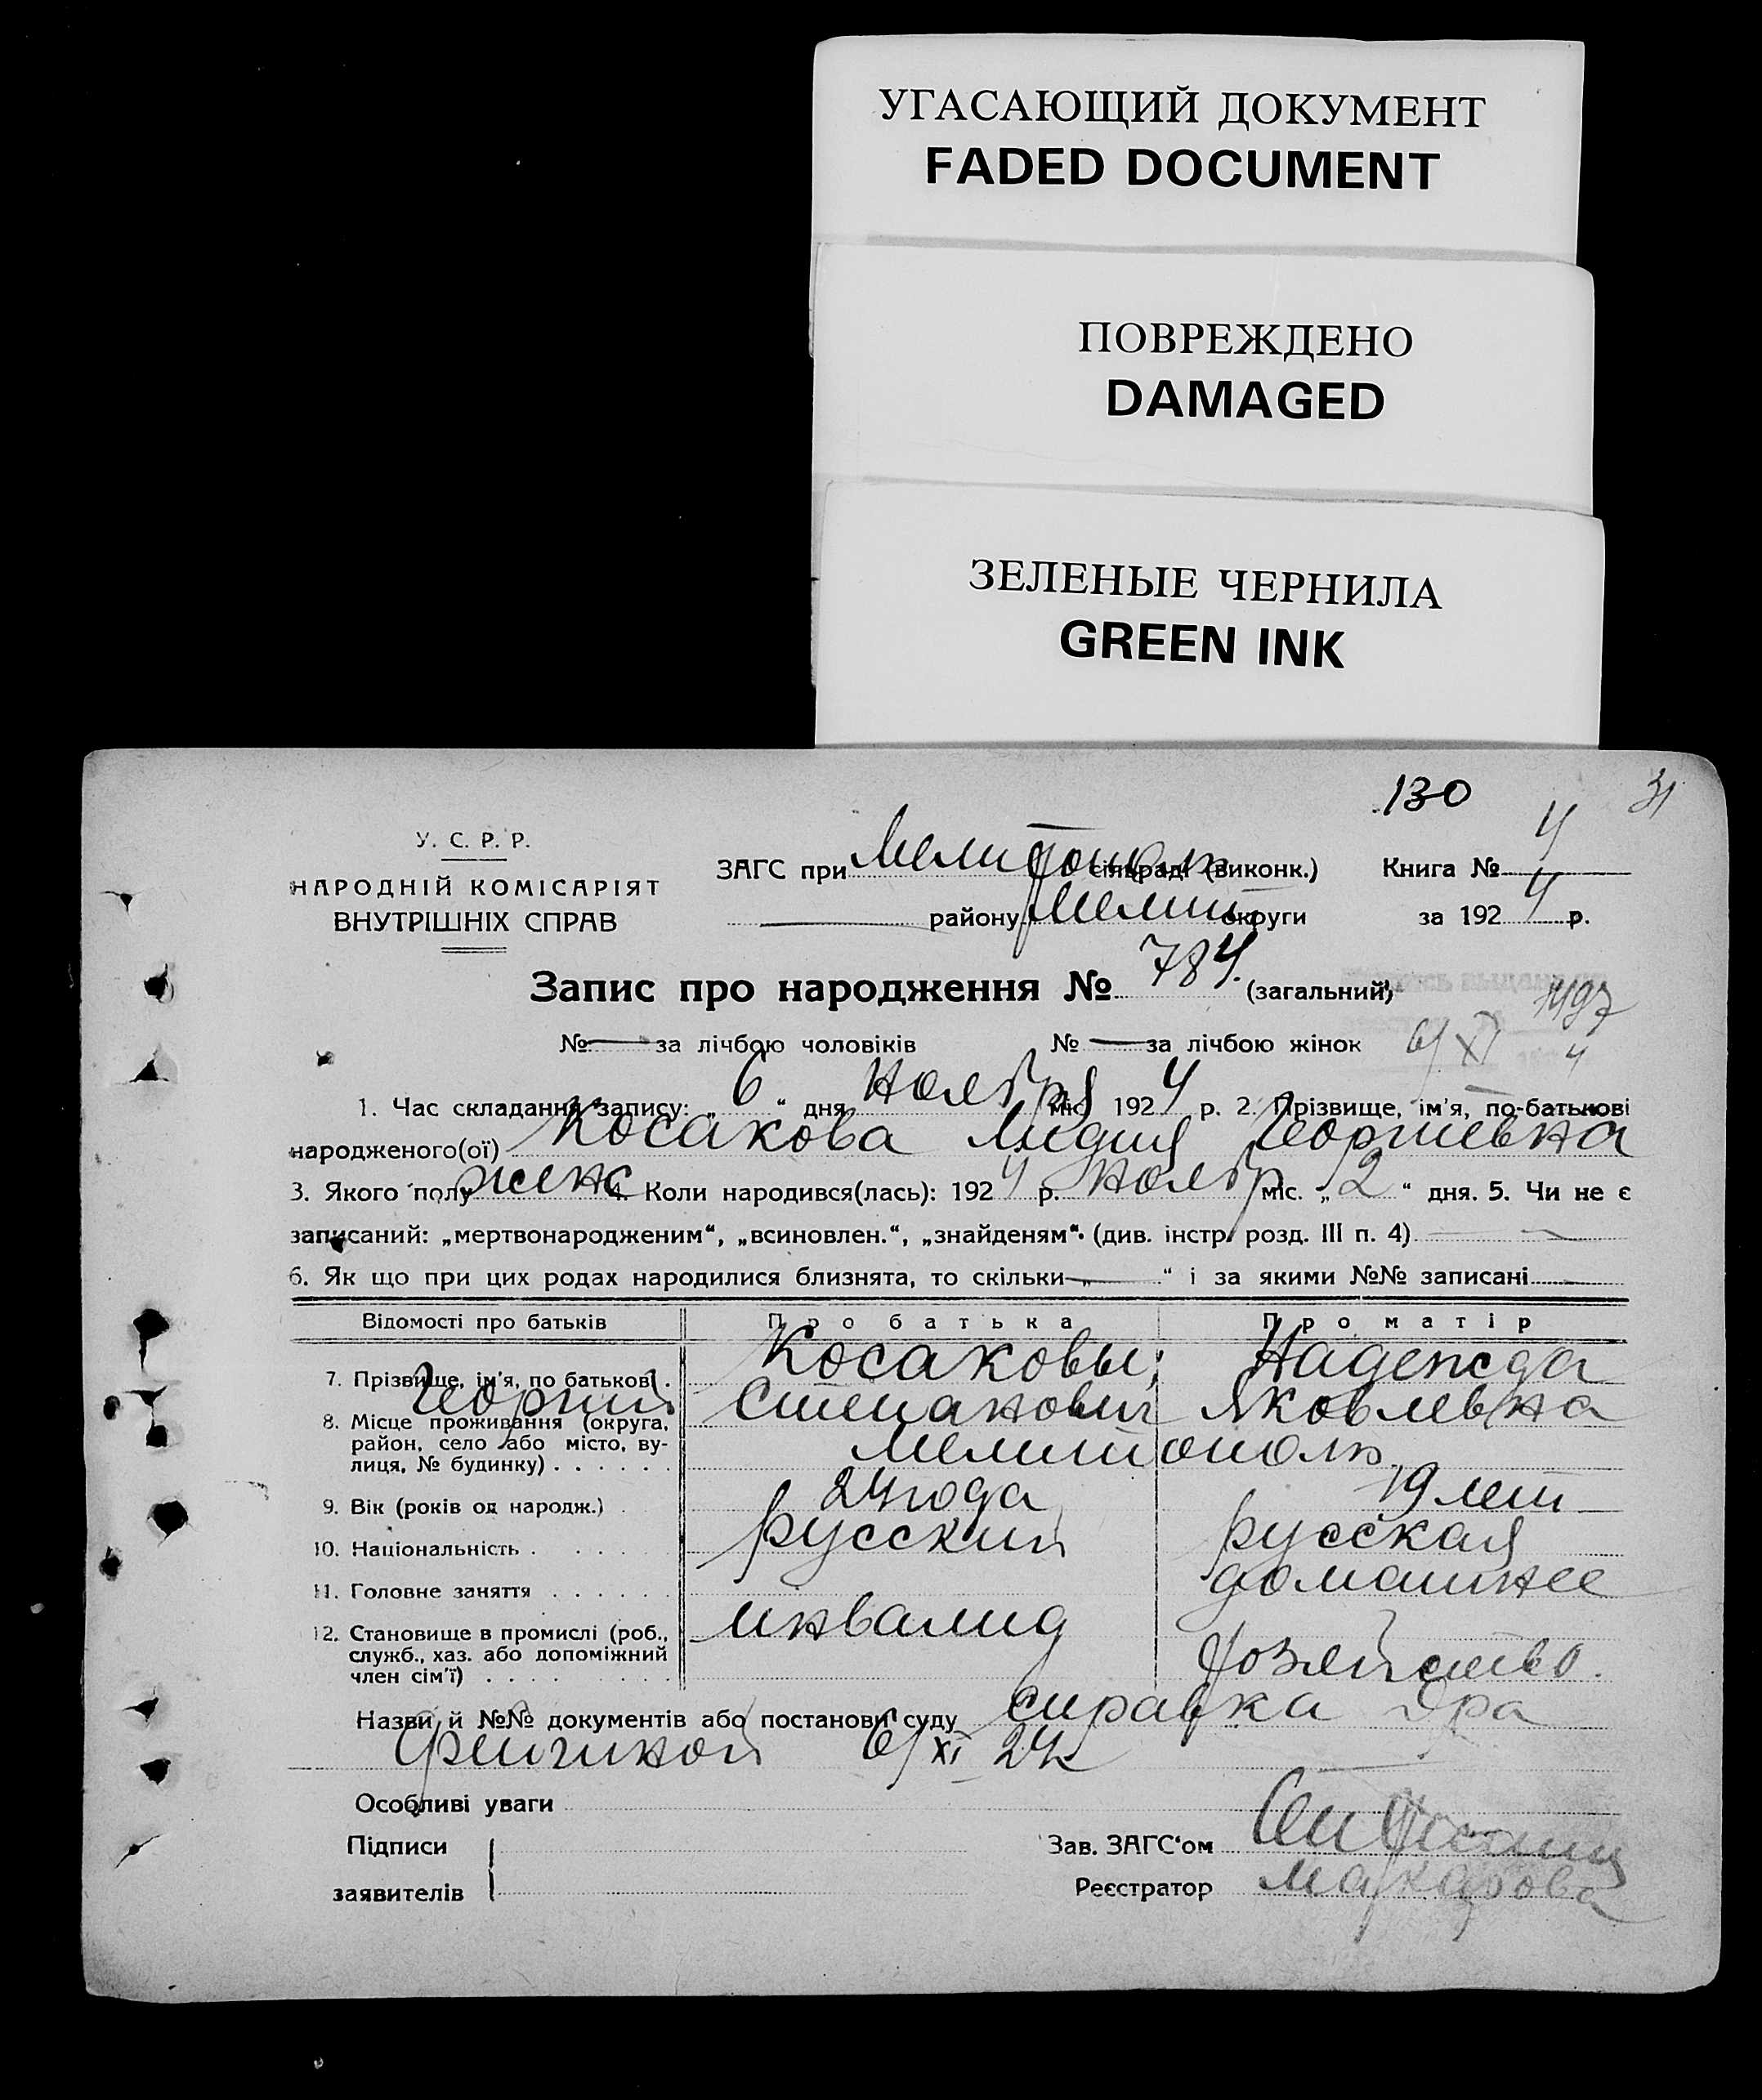 УГАСАЮЩИЙ ДОКУМЕНТ
FADED DOCUMENT
ПОВРЕЖДЕНО
DAMAGED
ЗЕЛЕНЫЕ ЧЕРНИЛА
GREEN INK
130 31
У. С. Р. Р.
НАРОДНІЙ КОМІСАРІЯТ
ВНУТРІШНІХ СПРАВ
ЗАГС при Мелитополь сільраді (виконк.) Книга № 4
району Мелит округи за 1924 р.
Запис про народження № 784. (загальний)
1497
№ — за лічбою чоловіків № — за лічбою жінок 6/XI 4
1. Час складання запису: „6“ дня ноября міс. 1924 р. 2. Прізвище, ім'я, по-батькові
народженого(ої) Косакова Лидия Георгиевна
3. Якого полу женс 4. Коли народився(лась): 1924 р. ноябр міс. „2“ дня. 5. Чи не є
записаний: „мертвонародженим“, „всиновлен.“, „знайденям“. (див. інстр. розд. III п. 4)
6. Як що при цих родах народилися близнята, то скільки „—“ і за якими №№ записані —
Відомості про батьків Про батька Про матір
7. Прізвище, ім'я, по батькові . Косаковы; Надежда
Георгий Степанович Яковлевна
8. Місце проживання (округа, район, село або місто, вулиця, № будинку) . . . . . . Мелитополь
9. Вік (років од народж.) . 24 года 19 лет
10. Національність . . . . русский русская
11. Головне заняття . . . . . . домашнее
12. Становище в промислі (роб., служб., хаз. або допоміжний член сім'ї) . . . . . . . инвалид хозяйство.
Назви й №№ документів або постанови суду справка Дра
6/XI 24
Особливі уваги
Підписи Зав. ЗАГС'ом
заявителів Реєстратор Макарова